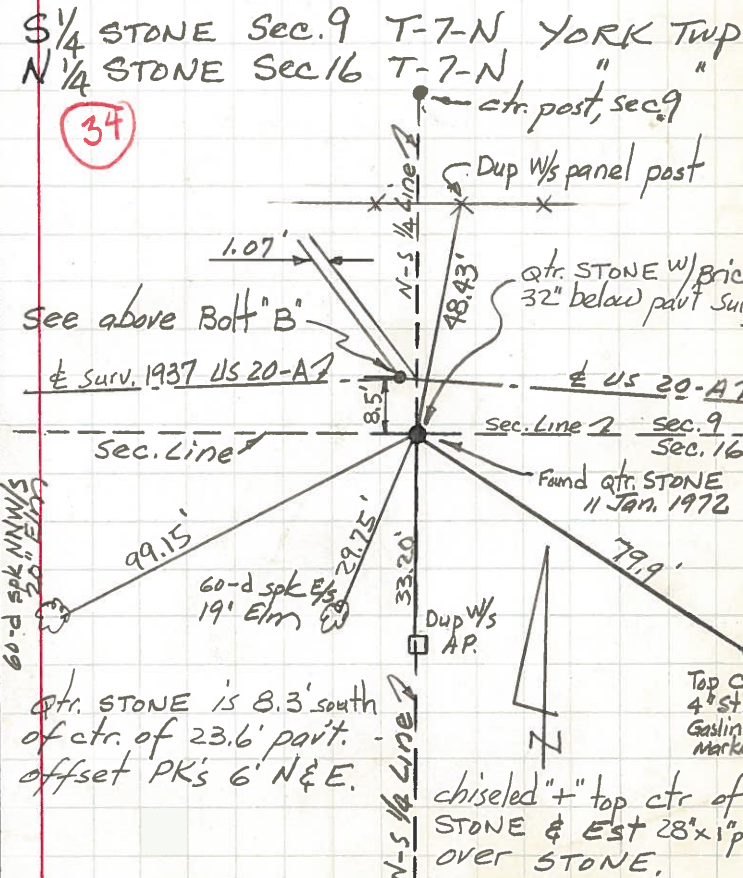 S 1/4 STONE Sec. 9 T-7-N YORK Twp
N 1/4 STONE Sec 16 T-7-N " "
34
ctr. post, sec. 9
Dup W/s panel post
N-S 1/4 Line
1.07'
48.43'
Qtr. STONE W/ Bric
32" below pav't Sur
See above Bolt "B"
℄ Surv. 1937 US 20-A
℄ US 20-A
8.5'
Sec. Line
Sec. Line
Sec. 9
Sec. 16
Found Qtr. STONE
11 Jan. 1972
60-d spk NNW/s
20" Elm
99.15'
29.75'
33.20'
79.9'
60-d spk E/s
19" Elm
Dup W/s
A.P.
N
Top C
4" St
Gaslin
Mark
Qtr. STONE is 8.3' south
of ctr. of 23.6' pav't. -
offset PK's 6' N & E.
N-S 1/4 Line
chiseled "+" top ctr of
STONE & Est 28" x 1" p
over STONE.